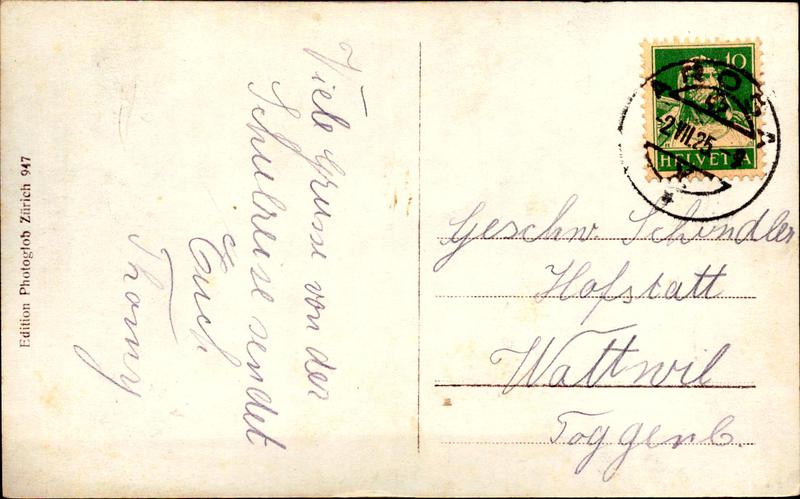 Viele Grüsse von der
Schulreise sendet
Euch
Thomy
Edition Photoglob Zürich 947
10
AROSA
-2.VII.25
HELVETIA
Geschw. Schindler
Hofstatt
Wattwil
Toggenb.